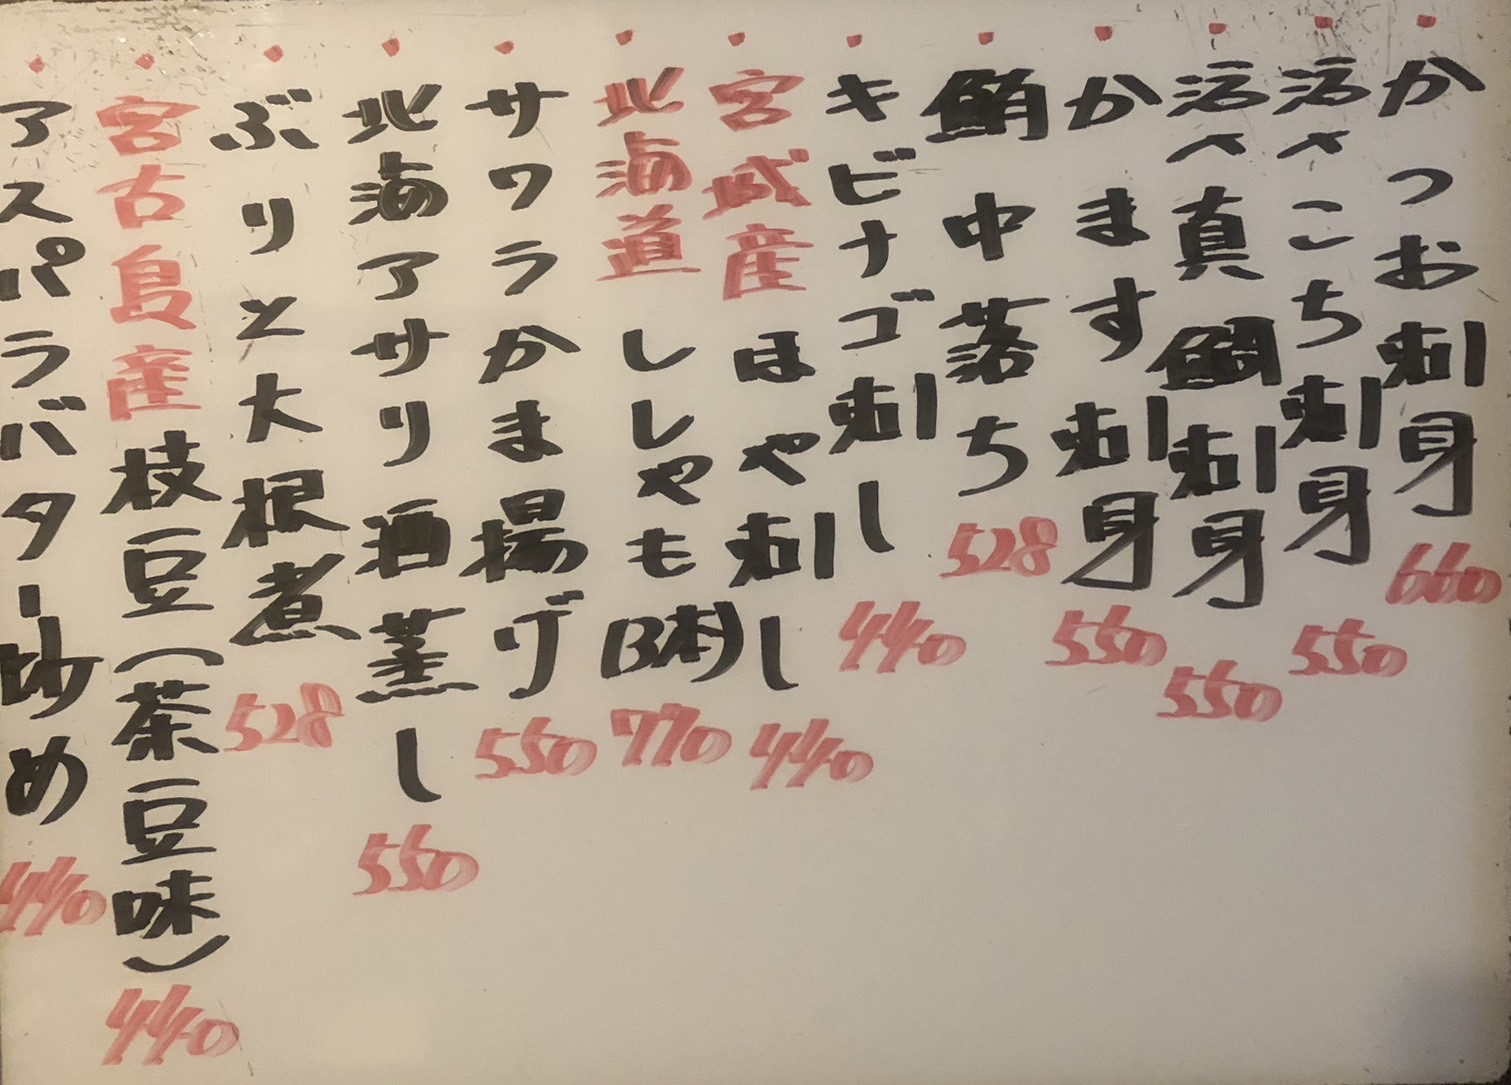 かつお刺身 660
活〆こち刺身 550
活〆真鯛刺身 550
かます刺身 550
鮪中落ち 528
キビナゴ刺し 440
宮城産ほや刺し 440
北海道ししゃも(3本) 770
サワラかま揚げ 550
北海アサリ酒蒸し 550
ぶりと大根煮 528
宮古島産枝豆(茶豆味) 440
アスパラバター炒め 440